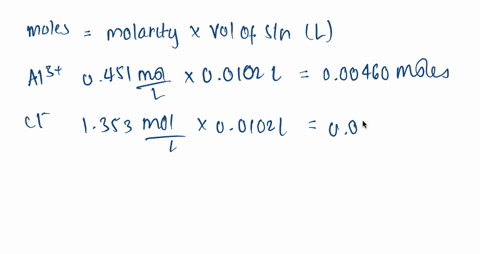 moles = molarity x vol of sln (L)
Al³⁺ 0.451 mol/L x 0.0102 L = 0.00460 moles
Cl⁻ 1.353 mol/L x 0.0102 L = 0.0